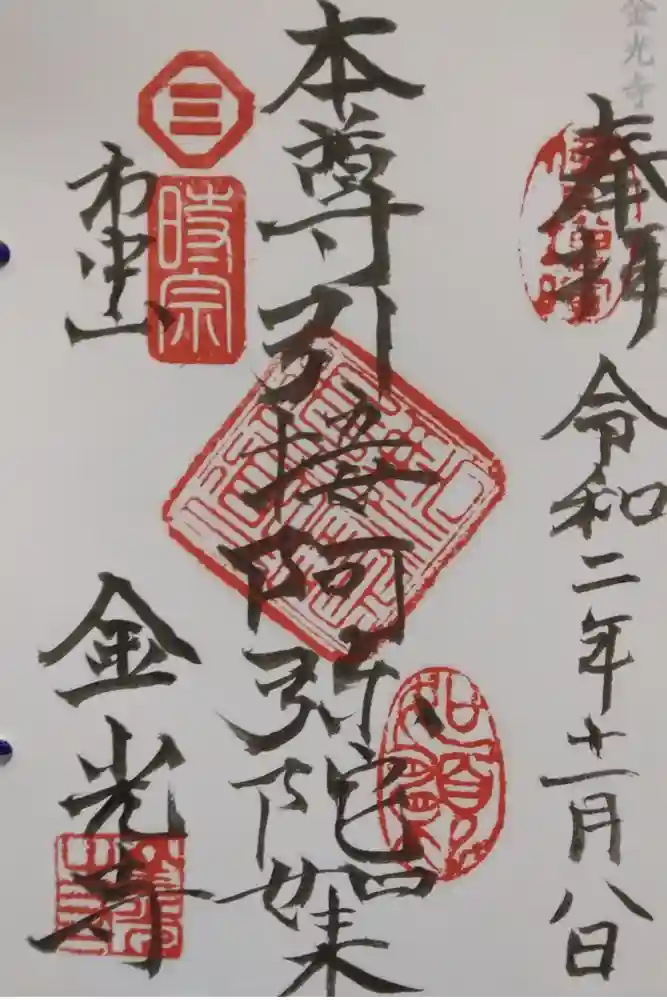 金光寺
奉拝
令和二年十一月八日
本尊引接阿弥陀如来
時宗
市中山
金光寺